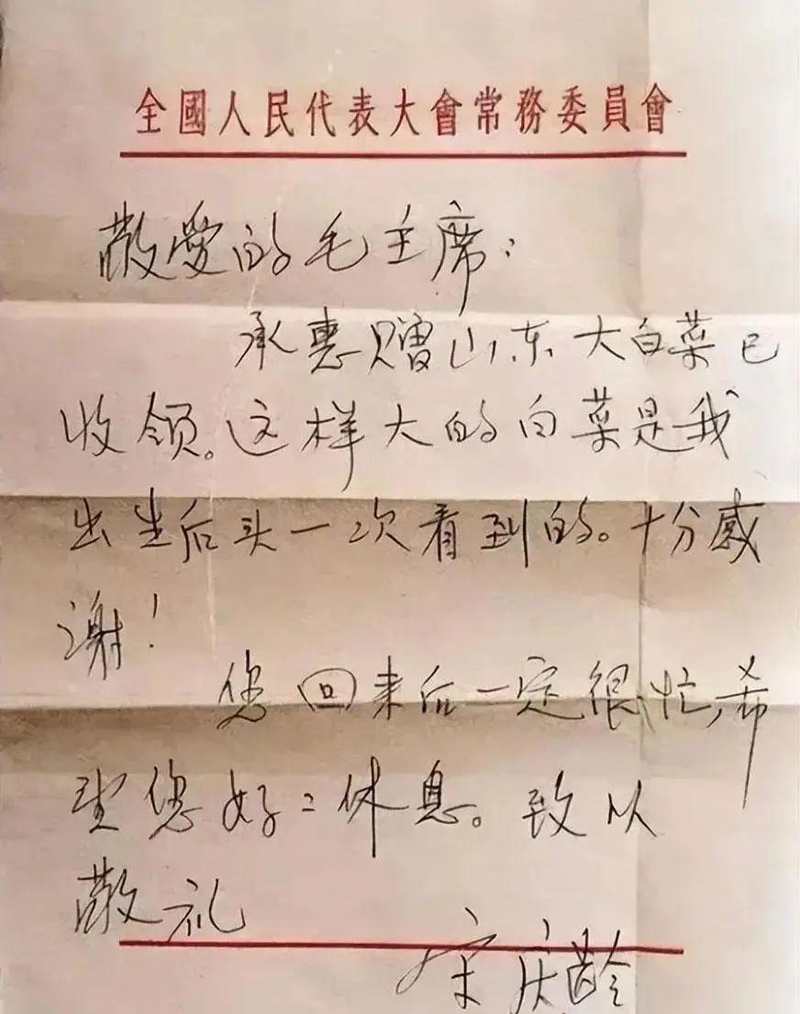 全國人民代表大會常務委員會
敬爱的毛主席：
承惠赠山东大白菜已
收领。这样大的白菜是我
出生后头一次看到的。十分感
谢！
您回来后一定很忙，希
望您好〻休息。致以
敬礼
宋庆龄